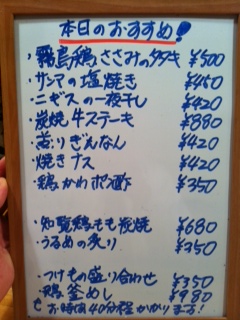 本日のおすすめ!
・霧島鶏ささみのタタキ ¥500
・サンマの塩焼き ¥450
・ニギスの一夜干し ¥420
・炭焼牛ステーキ ¥880
・煎りぎんなん ¥420
・焼きナス ¥420
・鶏かわポン酢 ¥350
・知覧鶏もも炭焼 ¥680
・うるめの炙り ¥350
・つけもの盛り合わせ ¥350
・鶏釜めし ¥980
お時間40分程かかります!